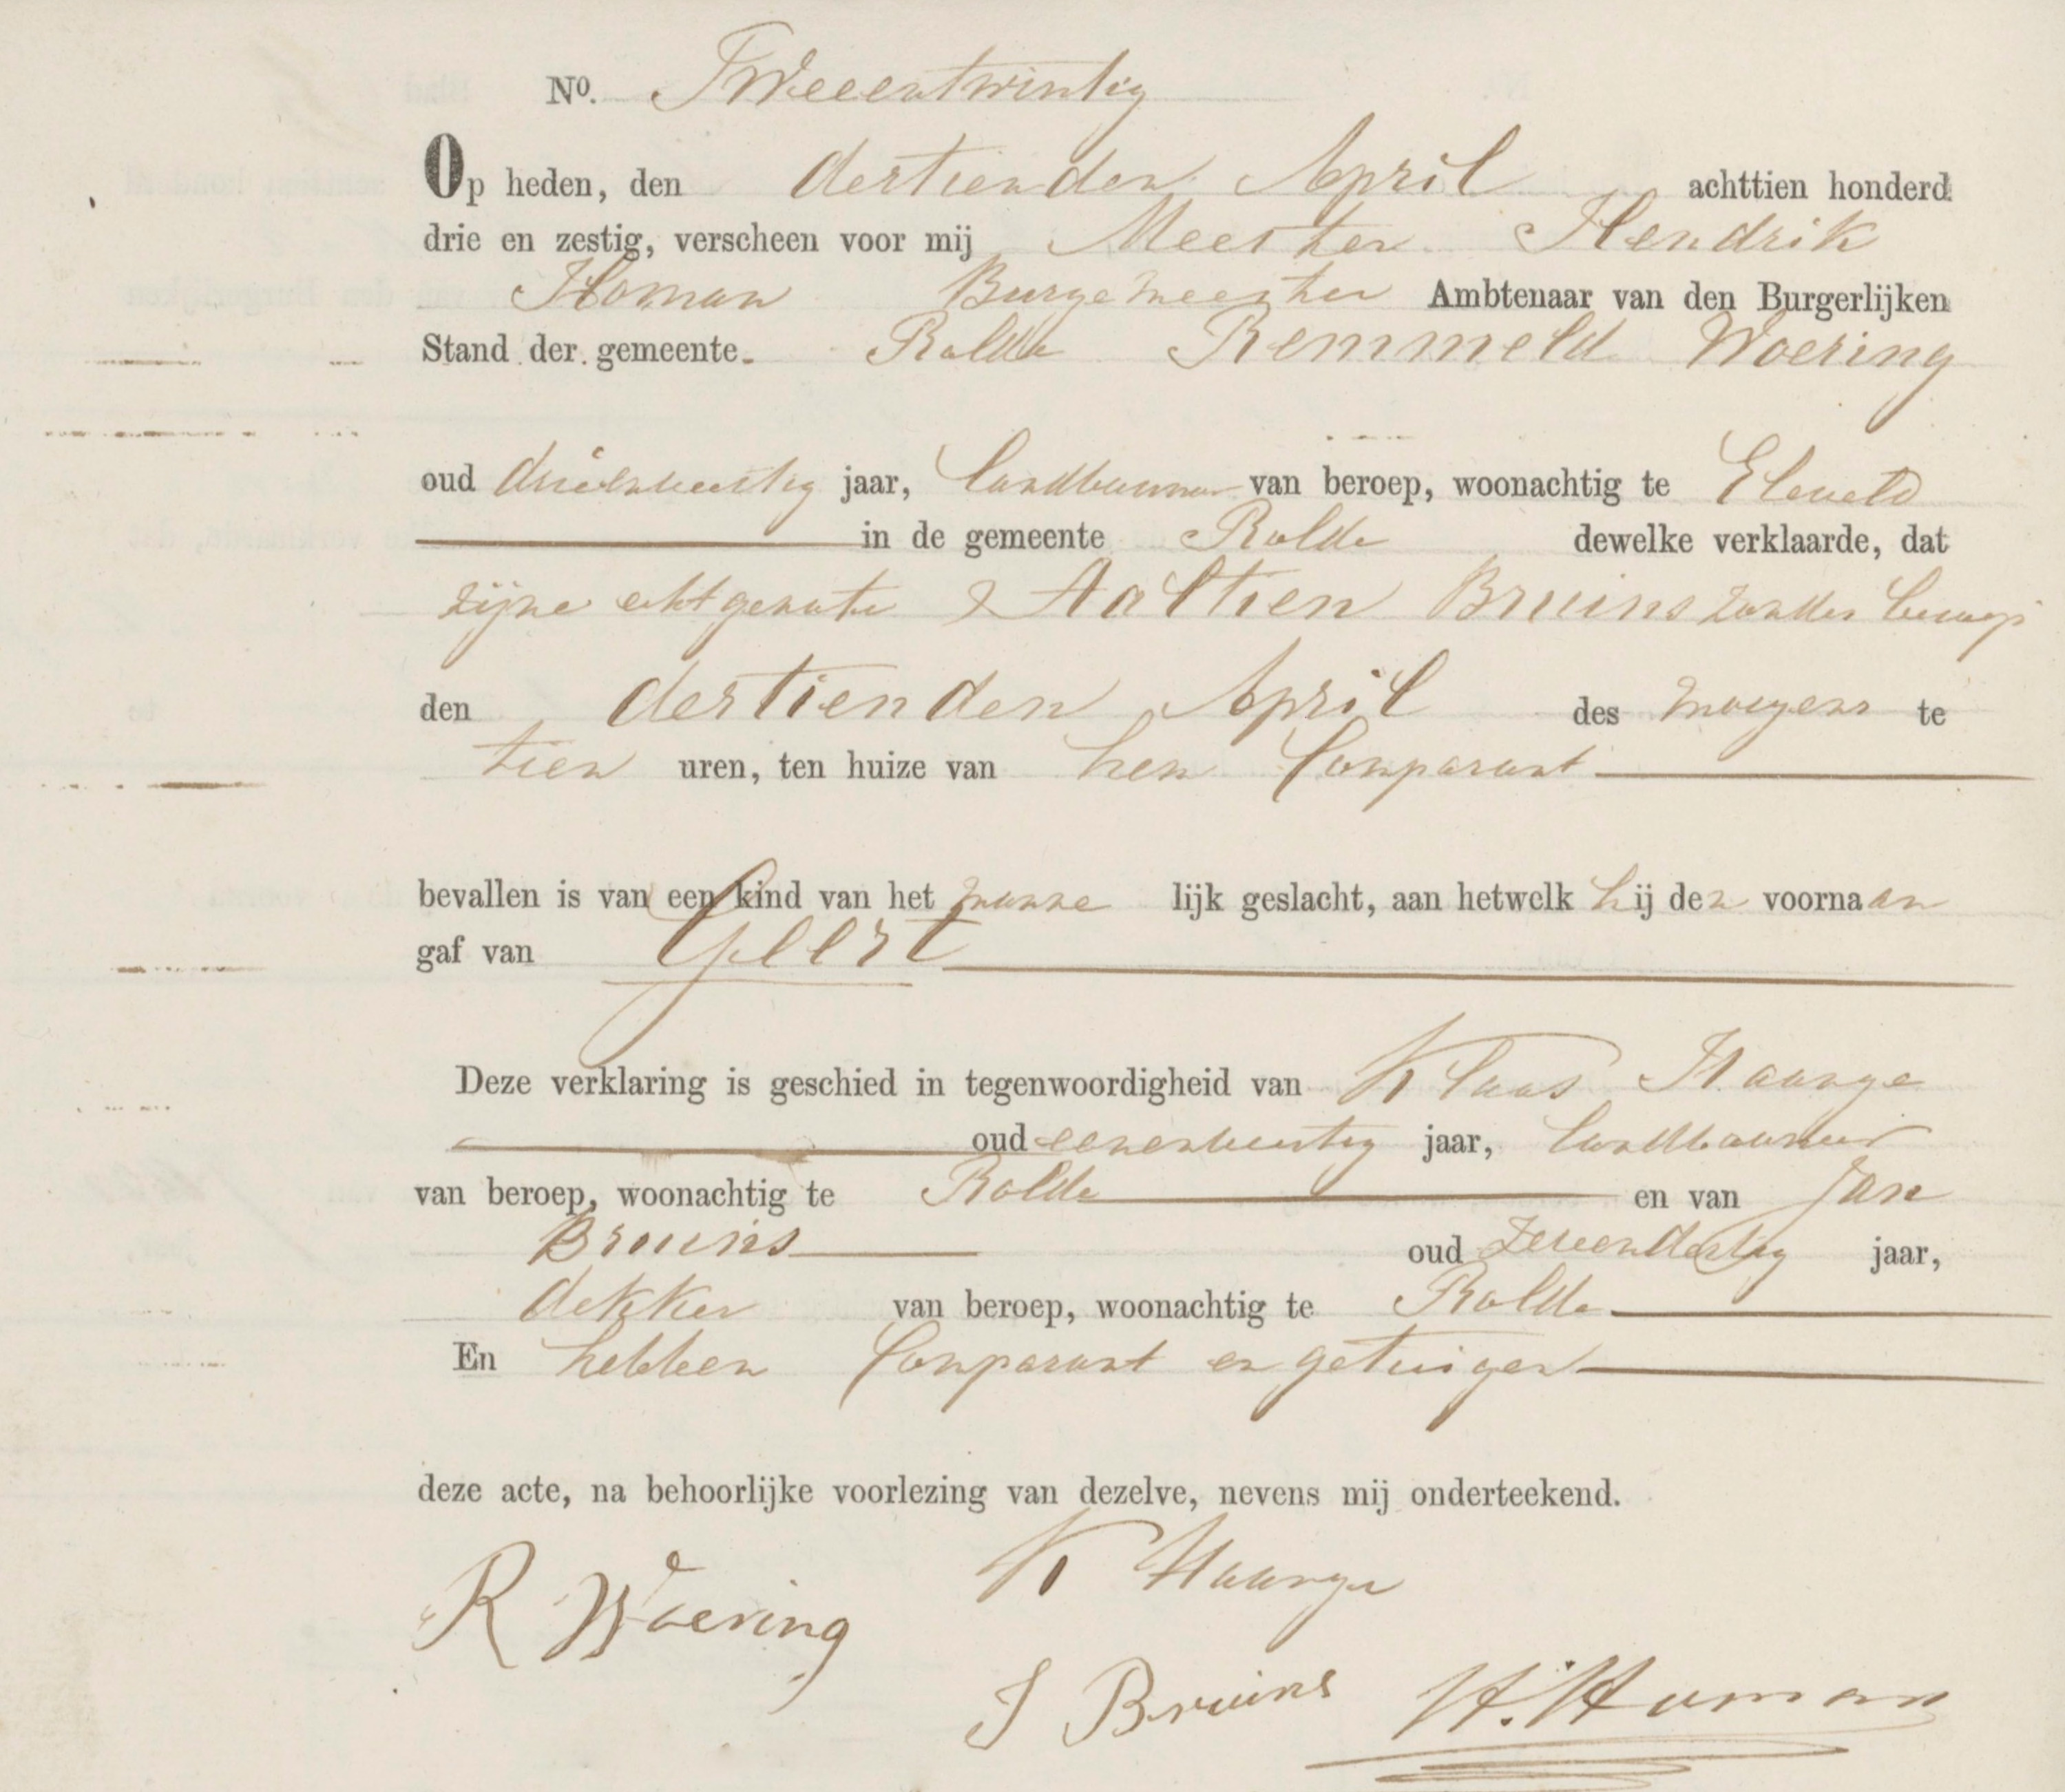 No. Tweeentwintig
Op heden, den dertienden April achttien honderd
drie en zestig, verscheen voor mij Meester Hendrik
Homan Burgemeester Ambtenaar van den Burgerlijken
Stand der gemeente Rolde Remmeld Woering
oud drieenveertig jaar, landbouwer van beroep, woonachtig te Eleveld
in de gemeente Rolde dewelke verklaarde, dat
zijne echtgenote Aaltien Bruins zonder beroep
den dertienden April des morgens te
tien uren, ten huize van hem Comparant
bevallen is van een kind van het manne lijk geslacht, aan hetwelk hij den voornaam
gaf van Geert
Deze verklaring is geschied in tegenwoordigheid van Klaas Haange
oud eenenveertig jaar, landbouwer
van beroep, woonachtig te Rolde en van Jan
Bruins oud zevendertig jaar,
dekker van beroep, woonachtig te Rolde
En hebben Comparant en getuigen
deze acte, na behoorlijke voorlezing van dezelve, nevens mij onderteekend.
K Haange
R Woering
J Bruins H. Homan